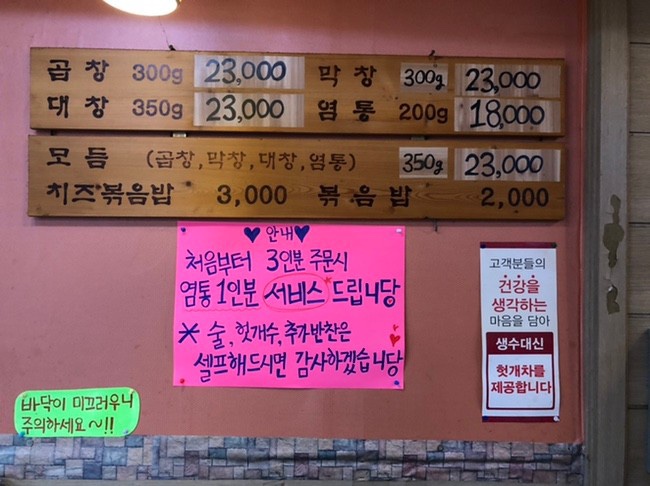 곱창 300g 23,000 막창 300g 23,000
대창 350g 23,000 염통 200g 18,000
모듬 (곱창,막창,대창,염통) 350g 23,000
치즈볶음밥 3,000 볶음밥 2,000
♥안내♥
처음부터 3인분 주문시
염통 1인분 서비스 드립니당
* 술, 헛개수, 추가반찬은
셀프해드시면 감사하겠습니당
고객분들의
건강을
생각하는
마음을 담아
생수대신
헛개차를
제공합니다
바닥이 미끄러우니
주의하세요~!!